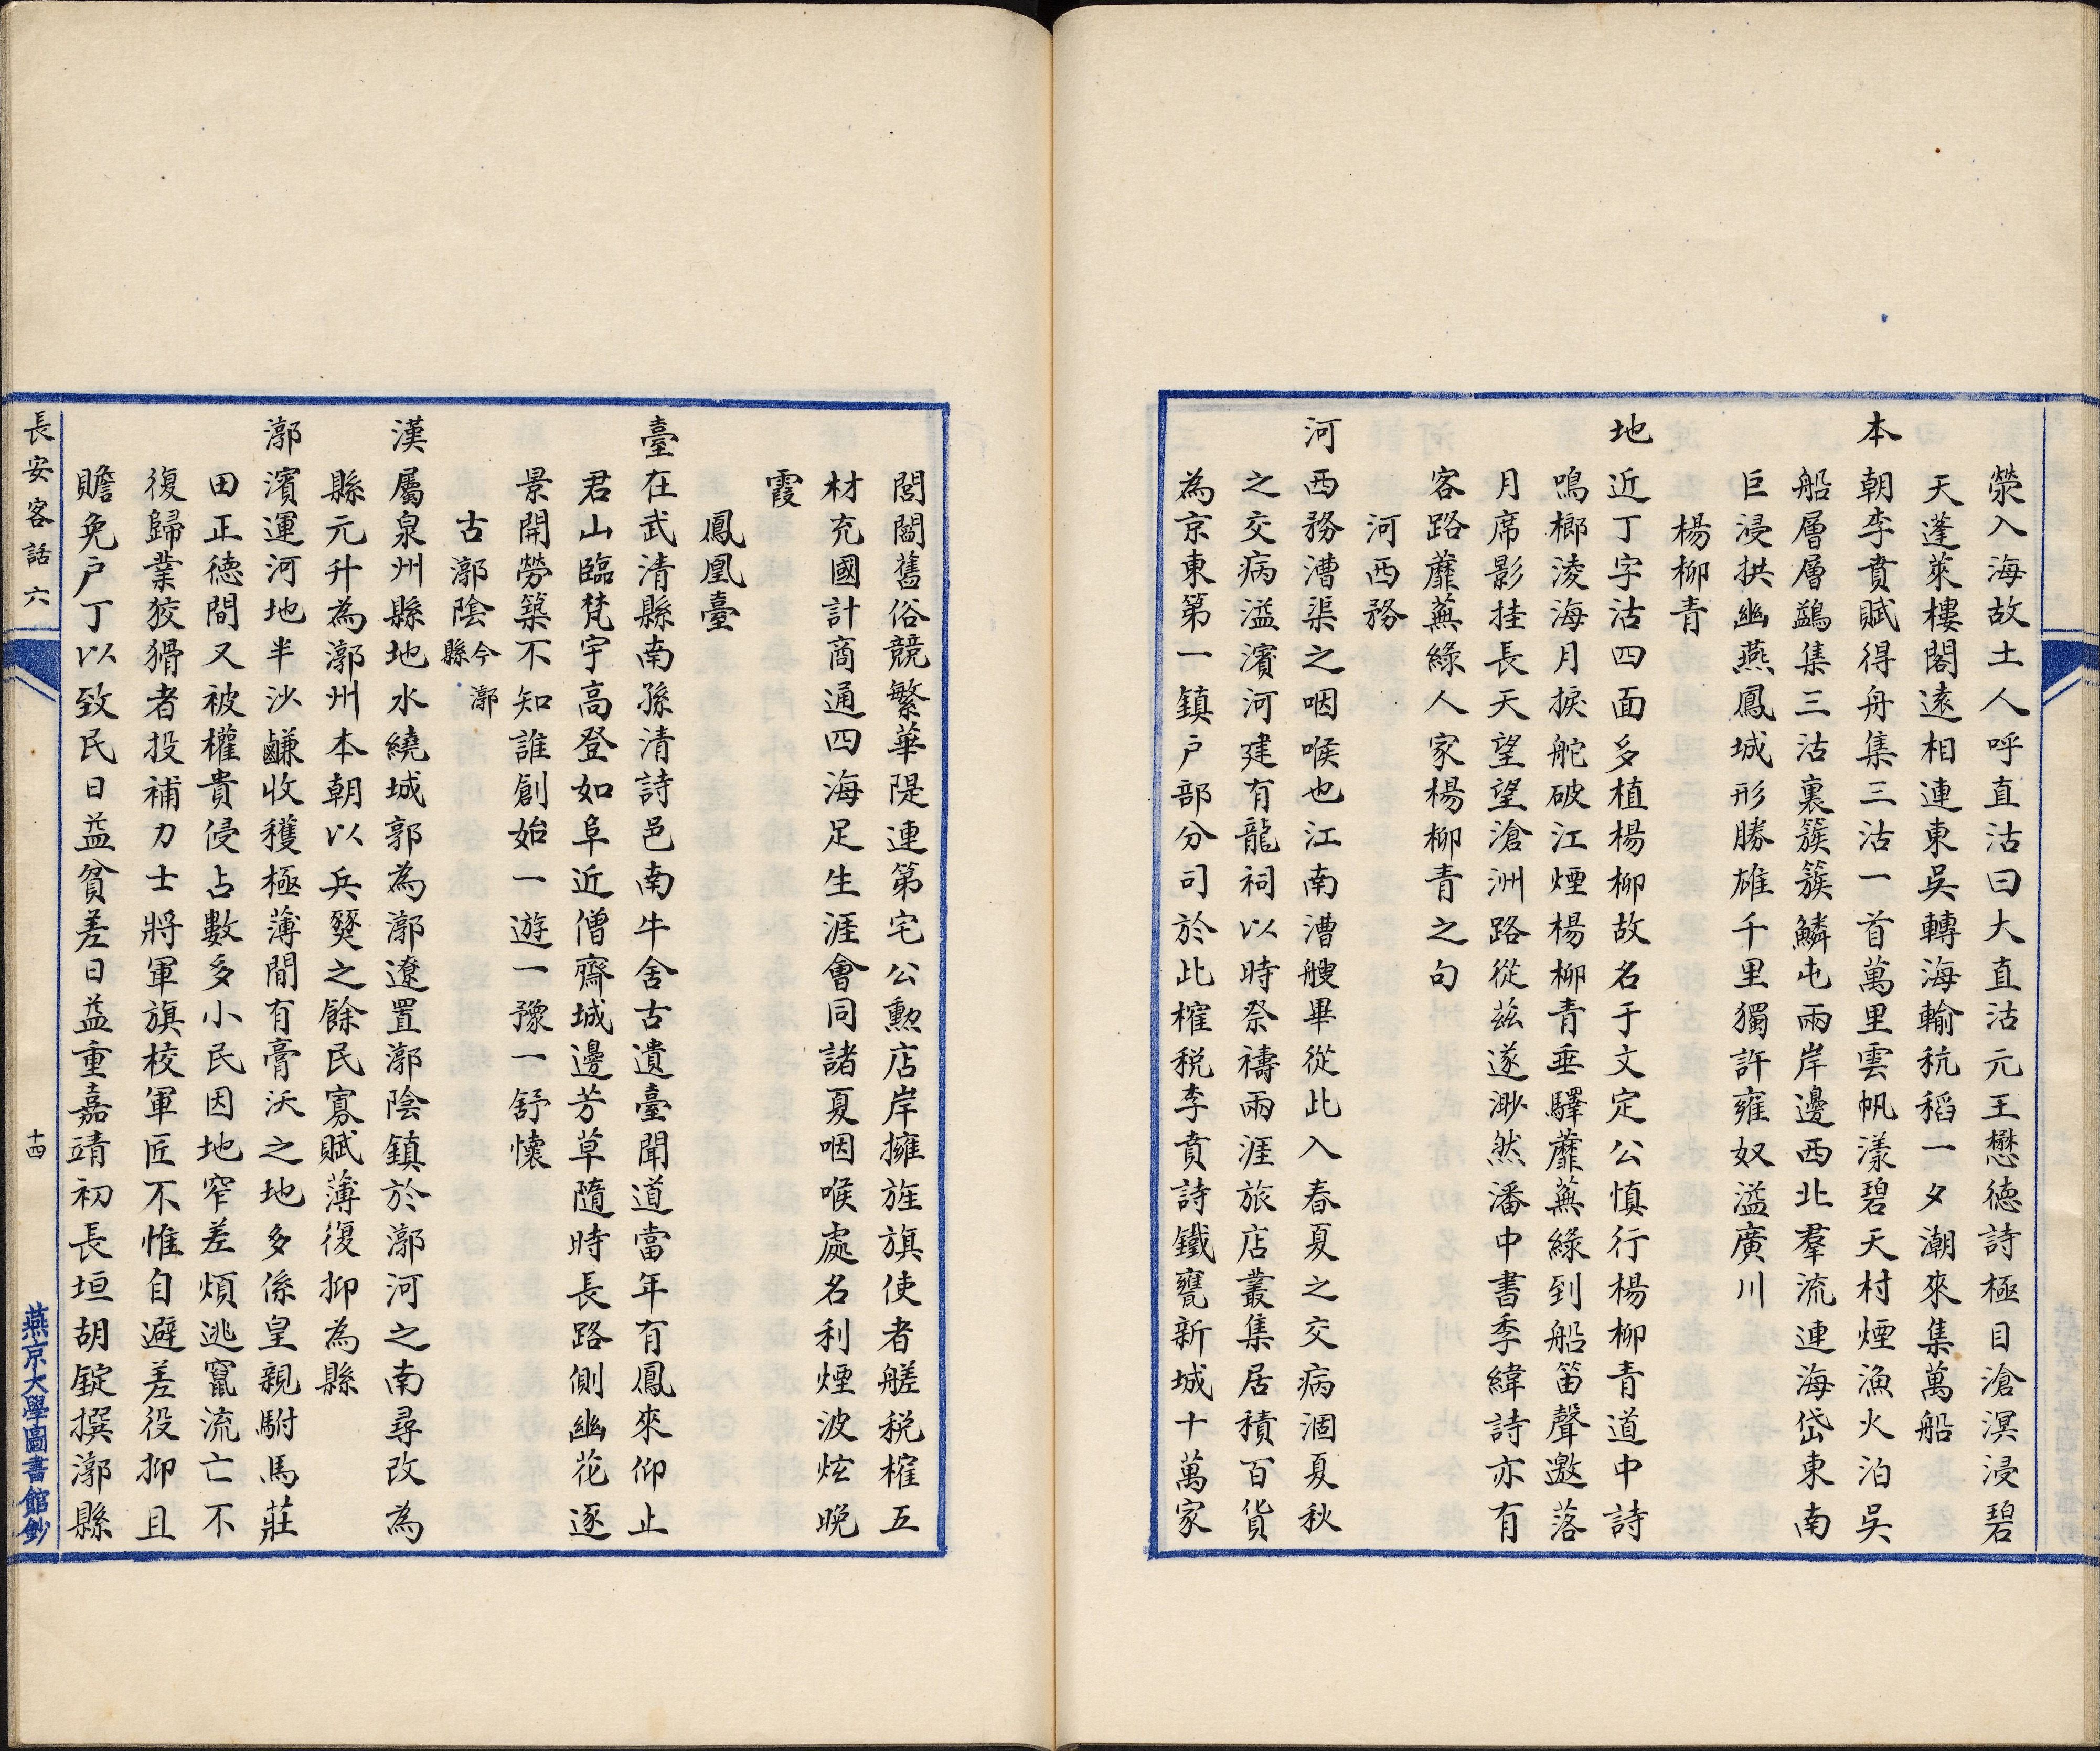 滎入海故土人呼直沽曰大直沽元王懋德詩極目滄溟浸碧
天蓬萊樓閣遠相連東吳轉海輸秔稻一夕潮來集萬船
本朝李賁賦得舟集三沽一首萬里雲帆漾碧天村煙漁火泊吳
船層層鷁集三沽裏簇簇鱗屯兩岸邊西北羣流連海岱東南
巨浸拱幽燕鳳城形勝雄千里獨許雍奴溢廣川
楊柳青
地近丁字沽四面多植楊柳故名于文定公慎行楊柳青道中詩
鳴榔淩海月捩舵破江煙楊柳青垂驛蘼蕪綠到船笛聲邀落
月席影挂長天望望滄洲路從茲遂渺然潘中書季緯詩亦有
客路蘼蕪綠人家楊柳青之句
河西務
河西務漕渠之咽喉也江南漕艘畢從此入春夏之交病涸夏秋
之交病溢濱河建有龍祠以時祭禱兩涯旅店叢集居積百貨
為京東第一鎮户部分司於此榷税李賁詩鐵甕新城十萬家
閭閻舊俗競繁華隄連第宅公勲店岸擁旌旗使者艖税榷五
材充國計商通四海足生涯會同諸夏咽喉處名利煙波炫晚
霞
鳳凰臺
臺在武清縣南孫清詩邑南牛舍古遺臺聞道當年有鳳來仰止
君山臨梵宇高登如阜近僧齋城邊芳草隨時長路側幽花逐
景開勞築不知誰創始一遊一豫一舒懷
古漷陰今漷縣
漢屬泉州縣地水繞城郭為漷遼置漷陰鎮於漷河之南尋改為
縣元升為漷州本朝以兵燹之餘民寡賦薄復抑為縣
漷濱運河地半沙鹻收穫極薄間有膏沃之地多係皇親駙馬莊
田正德間又被權貴侵占數多小民因地窄差煩逃竄流亡不
復歸業狡猾者投補力士將軍旗校軍匠不惟自避差役抑且
贍免户丁以致民日益貧差日益重嘉靖初長垣胡錠撰漷縣
長安客話 六
十四
燕京大學圖書館鈔